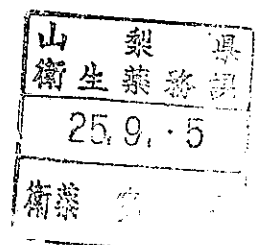 山梨県
衛生薬務課
25.9.-5
衛薬